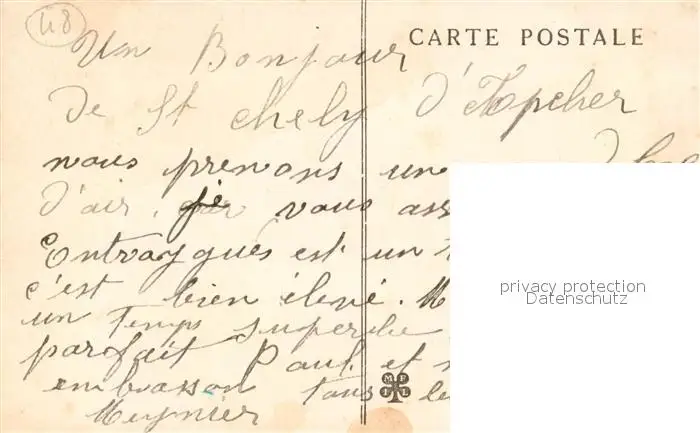 48
CARTE POSTALE
Un Bonjour
De St chely d'Apcher
nous prenons un
d'air, je vous ass
Entraygues est un
c'est bien élevé. M
un Temps superbe
parfait Paul et
embrasson tous le
Meynier
privacy protection
Datenschutz